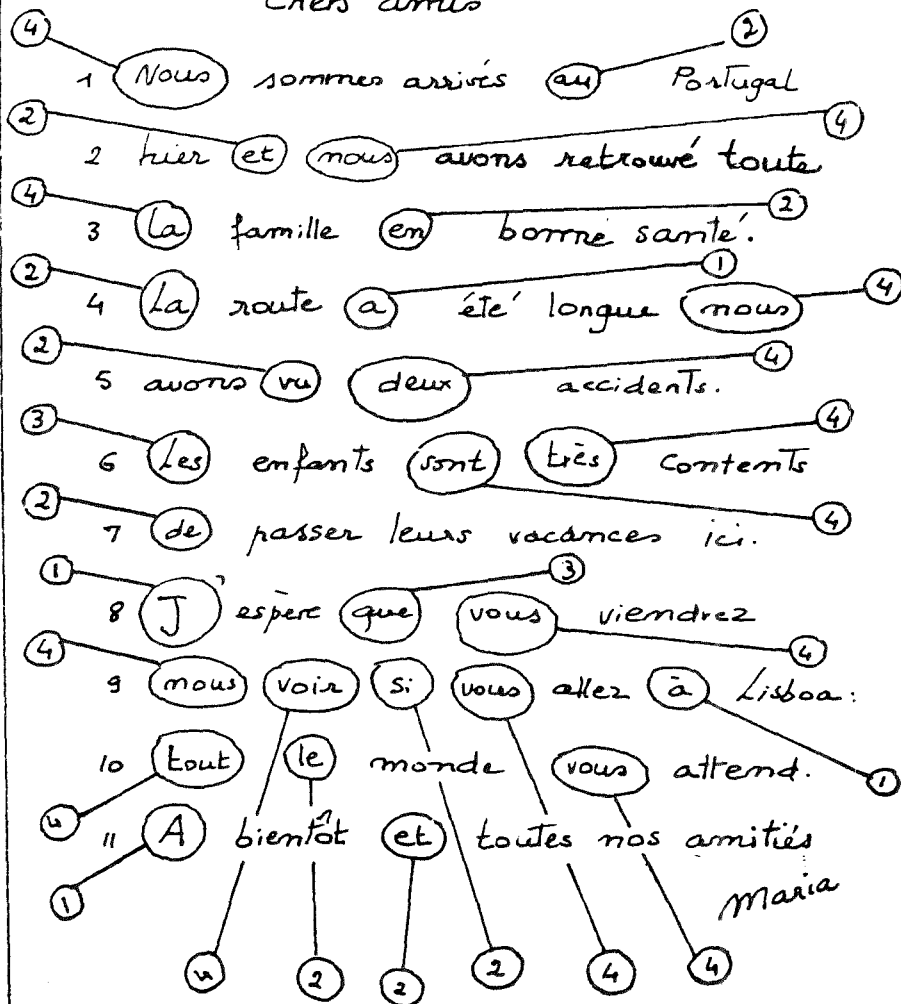 Chers amis
4 2
1 Nous sommes arrivés au Portugal
2 4
2 hier et nous avons retrouvé toute
4 2
3 La famille en bonne santé.
2 1 4
4 La route a été longue nous
2 4
5 avons vu deux accidents.
3 4
6 Les enfants sont très contents
2 4
7 de passer leurs vacances ici.
1 3
8 J'espère que vous viendrez
4 4
9 nous voir si vous allez à Lisboa:
10 tout le monde vous attend.
4 1
11 A bientôt et toutes nos amitiés
1 Maria
4 2 2 2 4 4